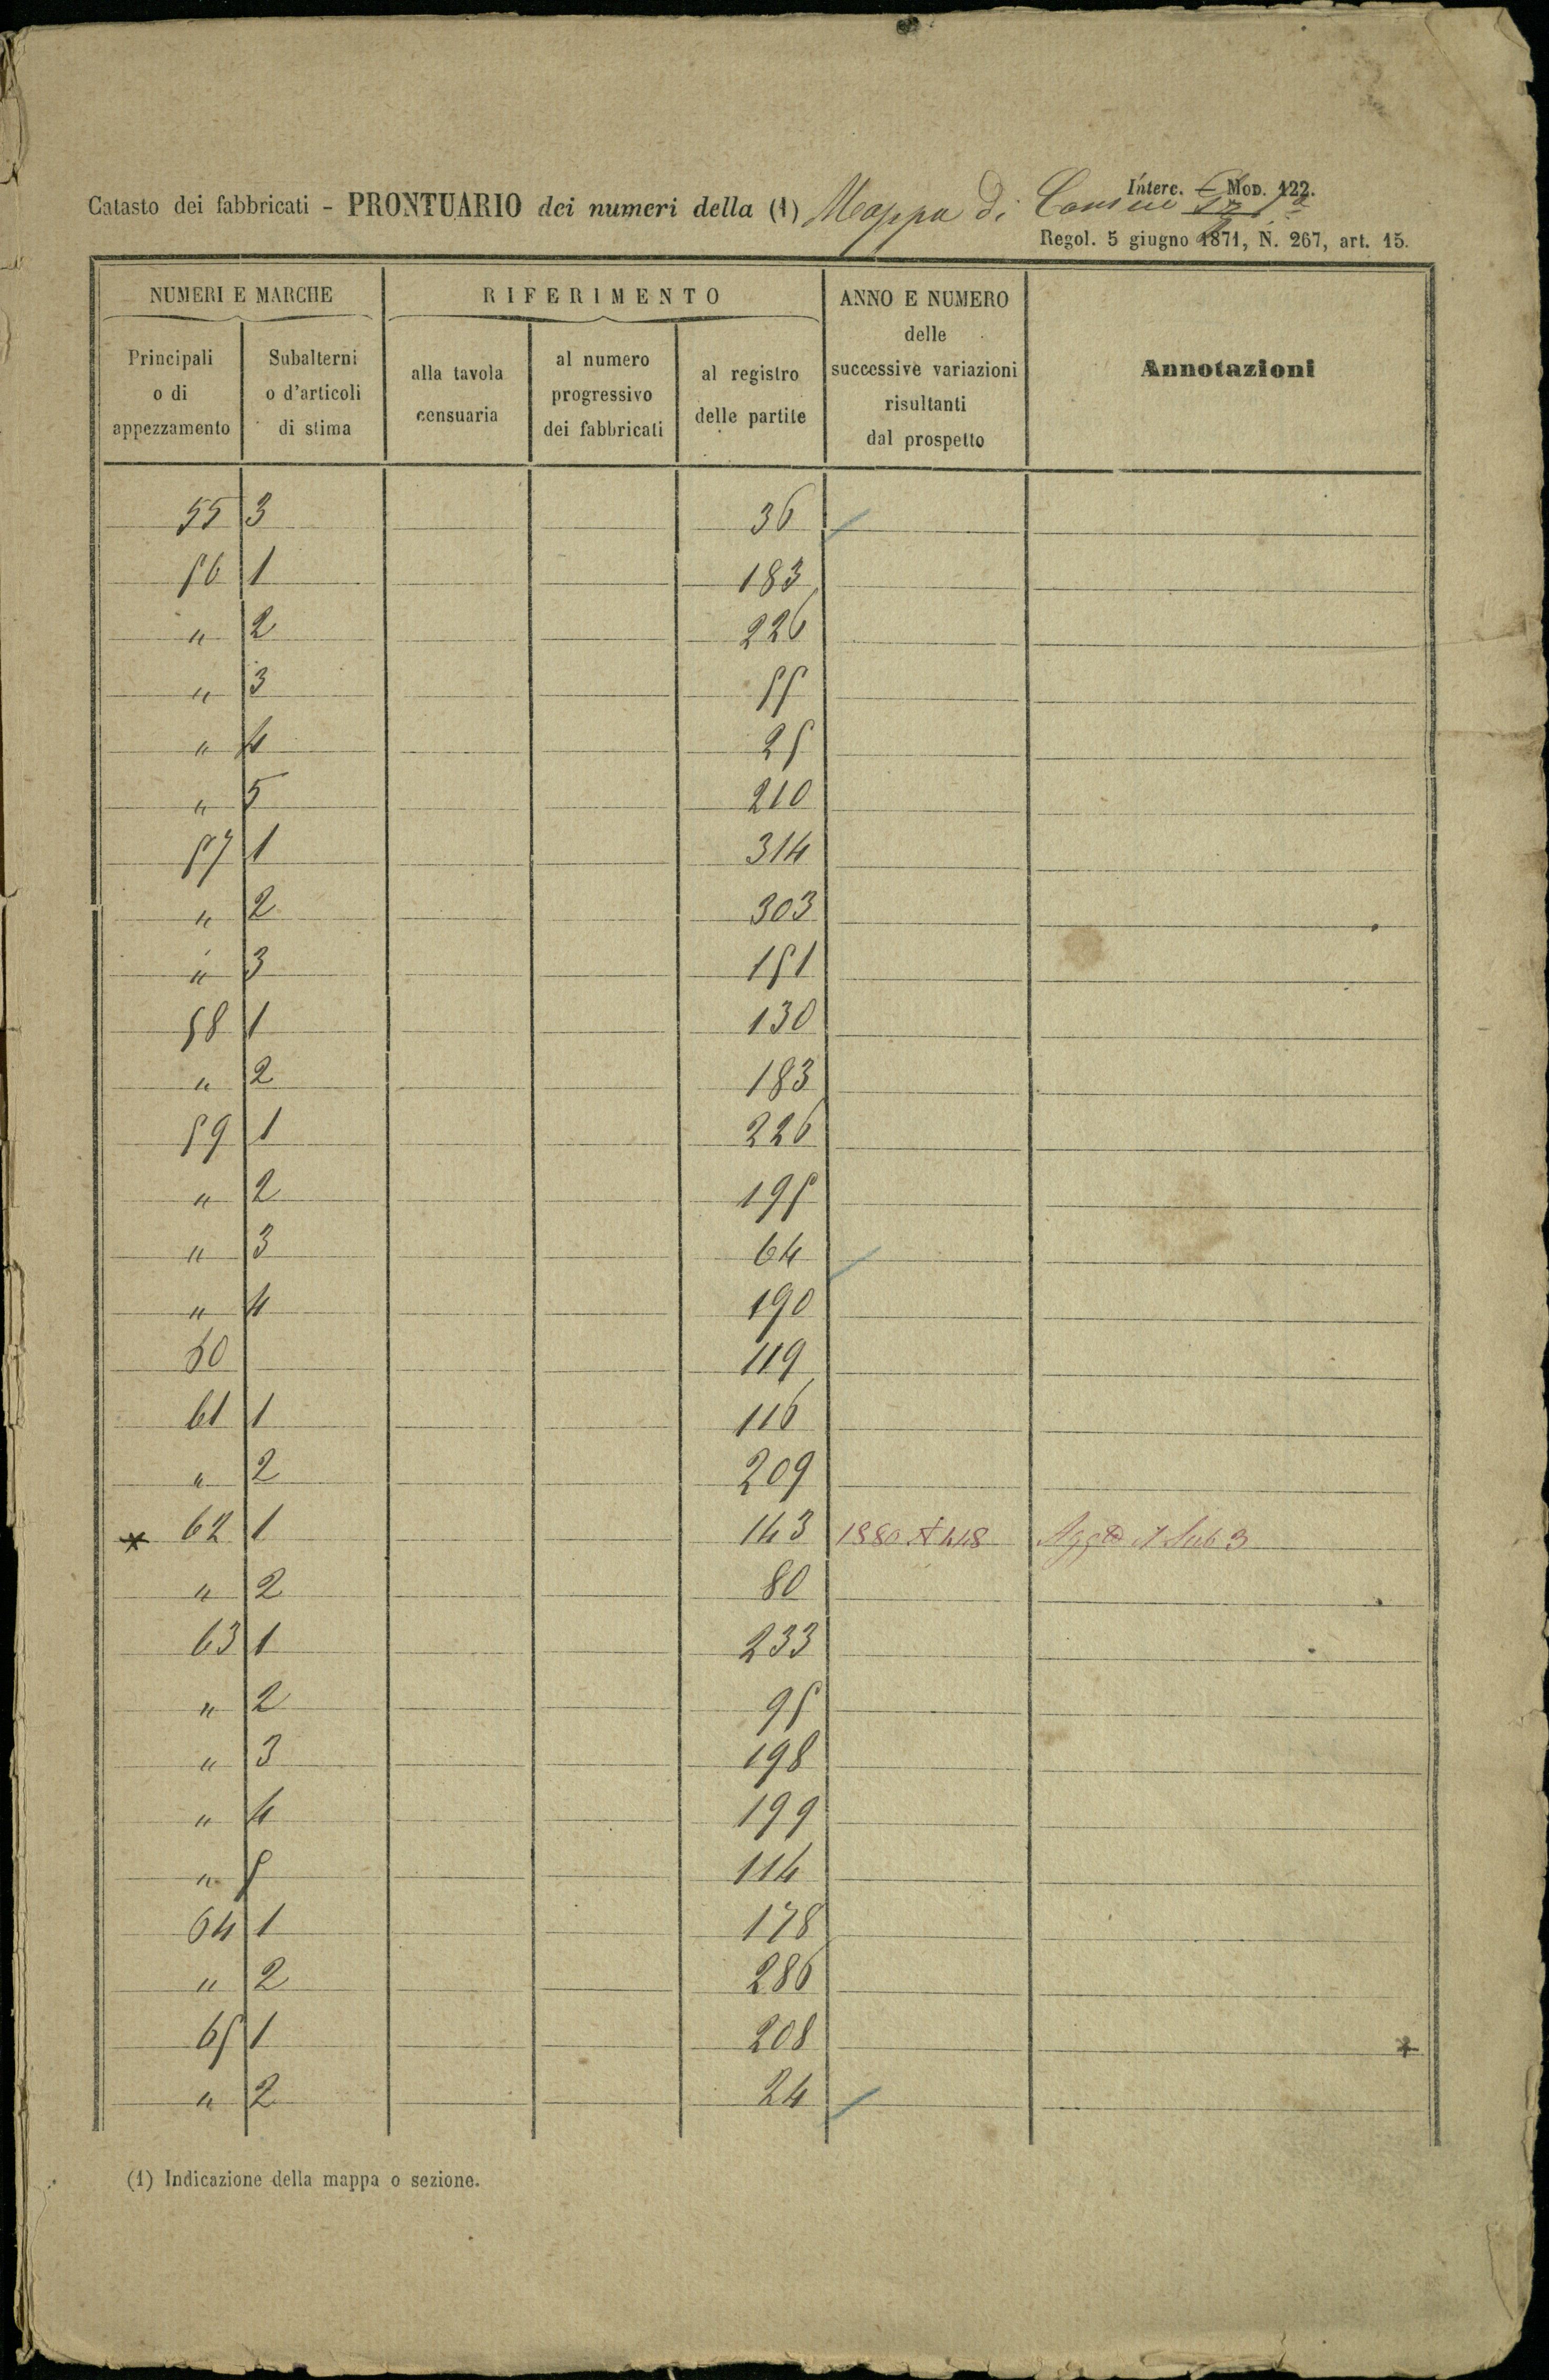 Interc. - Mod. 122.
Catasto dei fabbricati - PRONTUARIO dei numeri della (1) Mappa di
Regol. 5 giugno 1871, N. 267, art. 15.
NUMERI E MARCHE
RIFERIMENTO
ANNO E NUMERO
delle
successive variazioni
risultanti
dal prospetto
Annotazioni
Principali
o di
appezzamento
Subalterni
o d'articoli
di stima
alla tavola
censuaria
al numero
progressivo
dei fabbricati
al registro
delle partite
55 3 36
56 1 183
" 2 226
" 3 55
" 4 25
" 5 210
57 1 314
" 2 303
" 3 151
58 1 130
" 2 183
59 1 226
" 2 195
" 3 64
" 4 190
60 119
61 1 116
" 2 209
* 62 1 143 1880 N 448 Sub 3
" 2 80
63 1 233
" 2 95
" 3 198
" 4 199
" 5 114
64 1 178
" 2 286
65 1 208 *
" 2 24
(1) Indicazione della mappa o sezione.